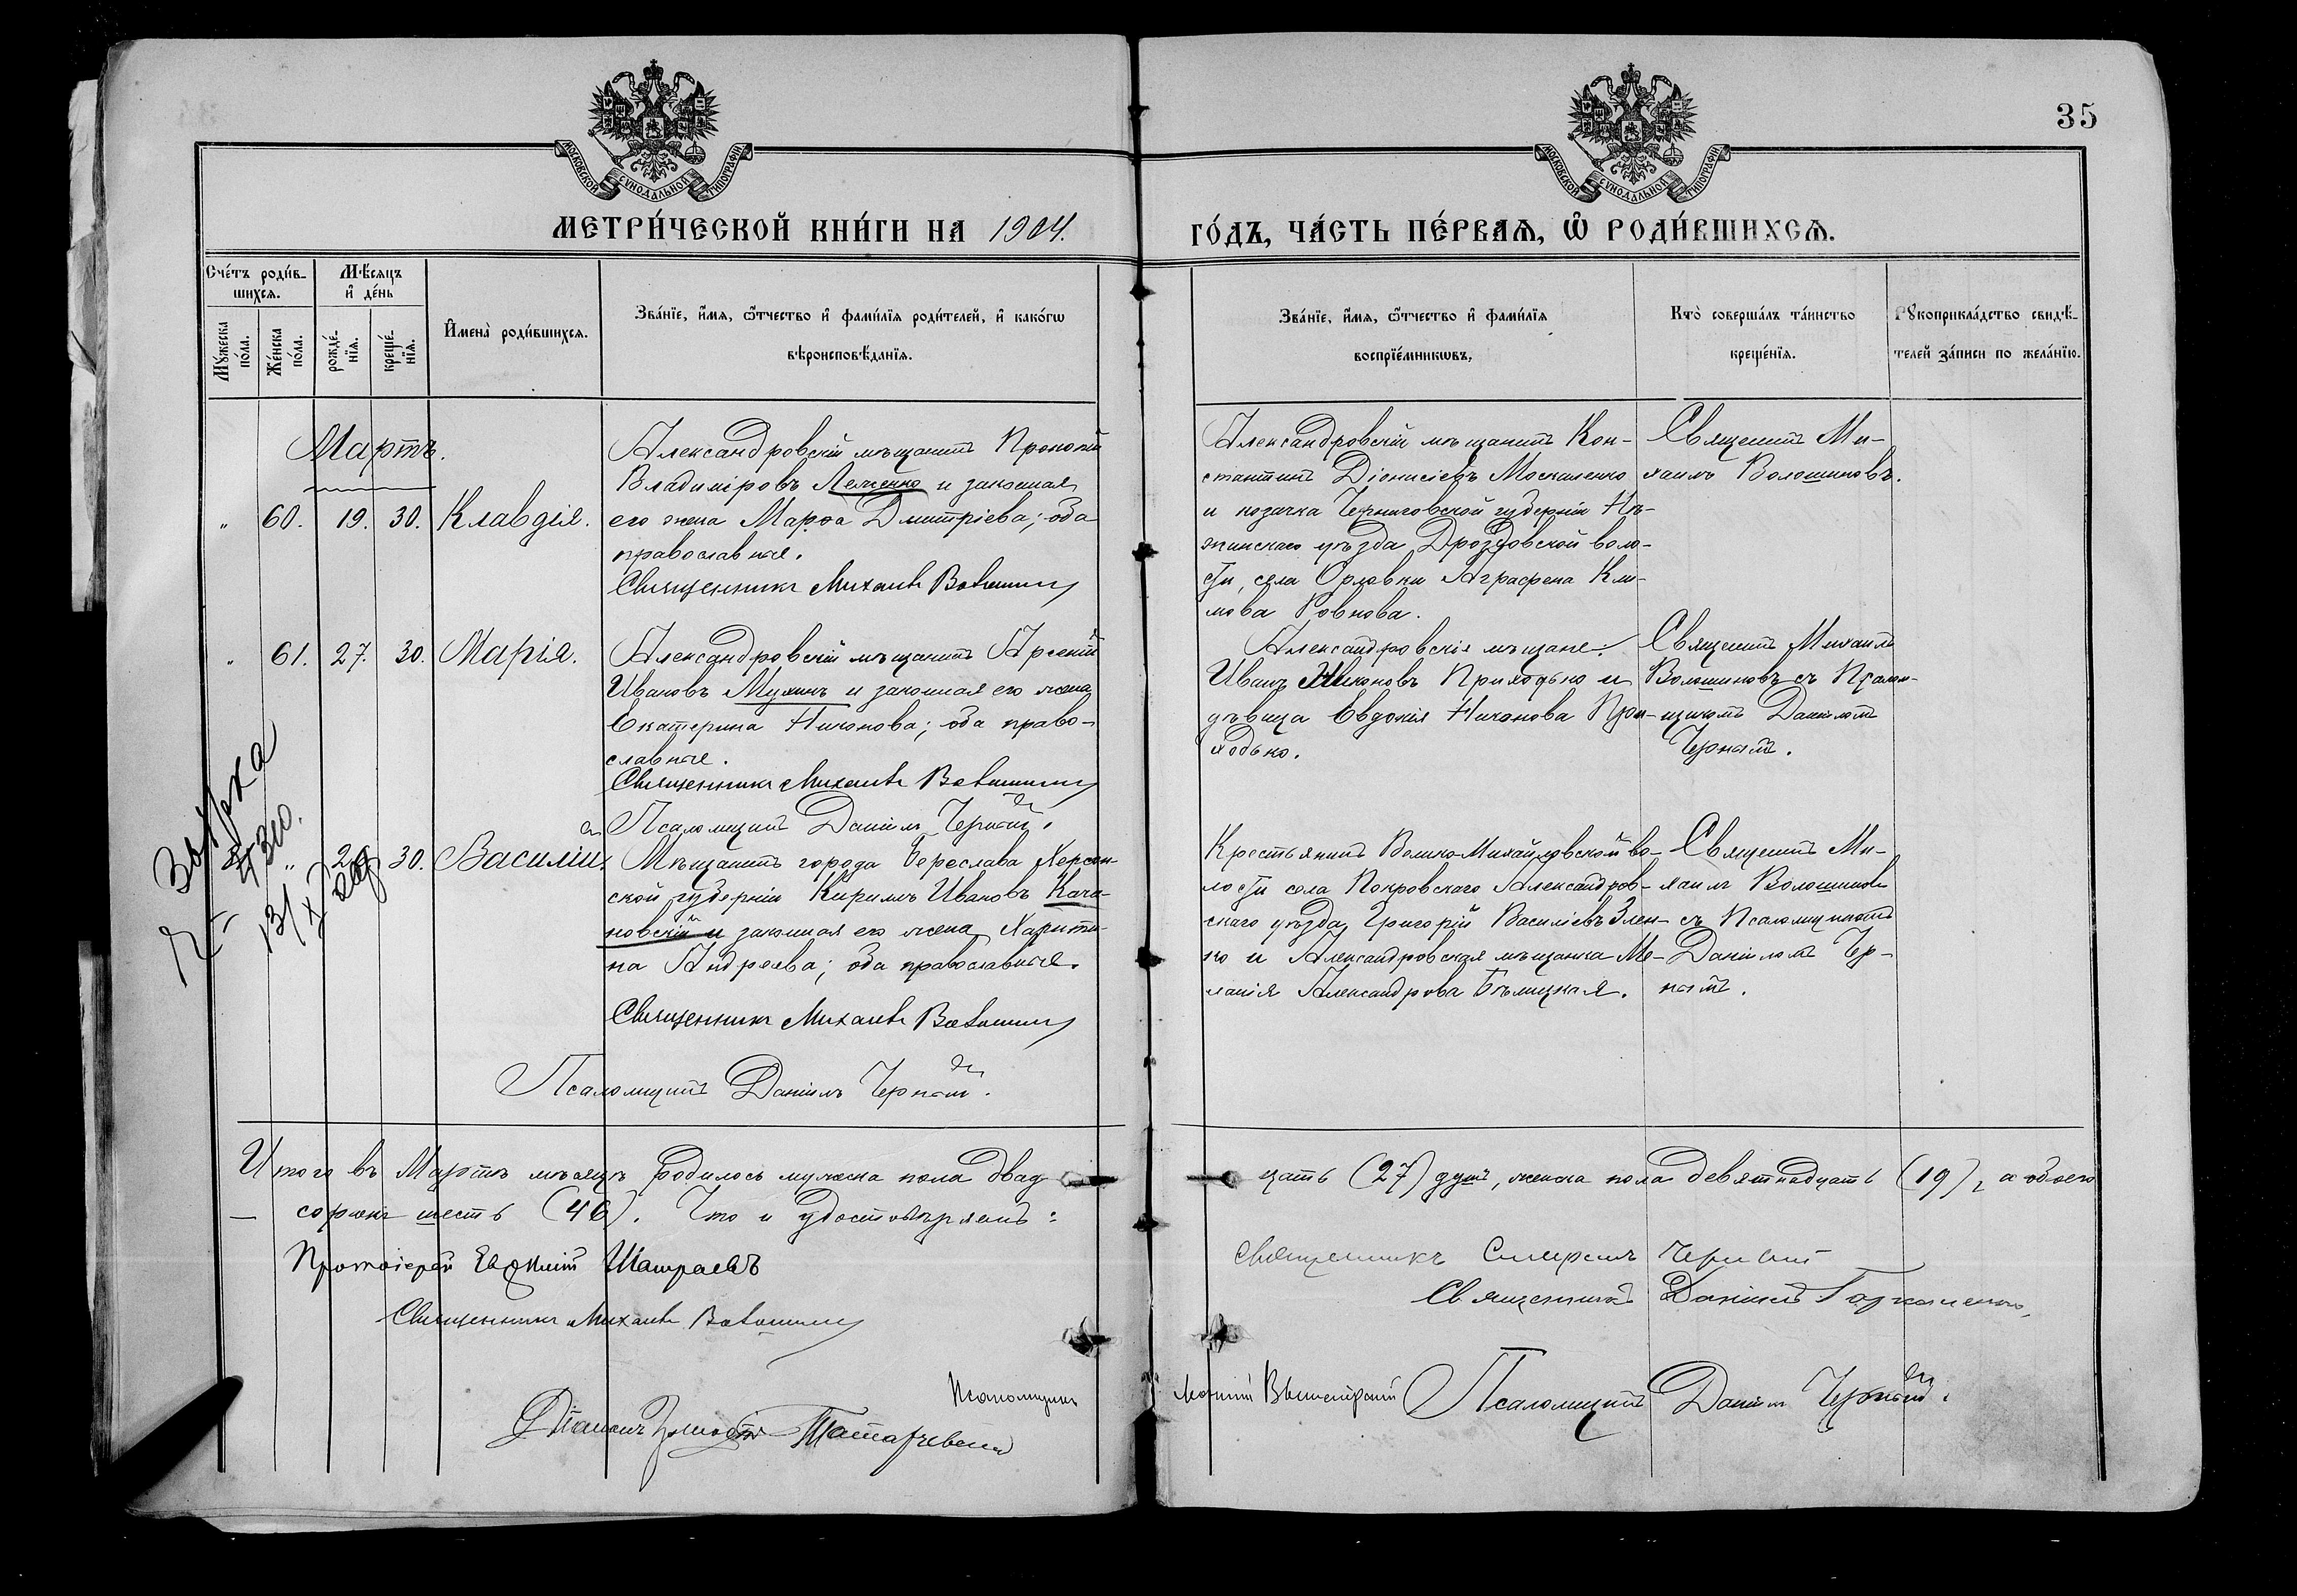 35
МОСКОВСКОЙ СУНОДАЛЬНОЙ ТИПОГРАФІИ
МОСКОВСКОЙ СУНОДАЛЬНОЙ ТИПОГРАФІИ
МЕТРИ́ЧЕСКОЙ КНИ́ГИ НА 1904. ГО́ДЪ, ЧА́СТЬ ПЕ́РВАѦ, Ѡ҆ РОДИ́ВШИХСѦ.
Сче́тъ роди́в-
шихсѧ.
Мѹжеска по́ла.
Же́нска по́ла.
Мѣ́сѧцъ
и҆ де́нь
рожде́-
нїѧ.
креще́-
нїѧ.
И҆мена̀ роди́вшихсѧ.
Зва́нїе, и҆́мѧ, ѻ҆́тчество и҆ фами́лїѧ роди́телей, и҆ како́гѡ
вѣроисповѣ́данїѧ.
Зва́нїе, и҆́мѧ, ѻ҆́тчество и҆ фами́лїѧ
воспрїе́мникѡвъ,
Кто̀ соверша́лъ та́инство
креще́нїѧ.
Рꙋкоприкла́дство свидѣ́-
телей за́писи по жела́нїю.
Мартъ.
" 60. 19. 30. Клавдія.
Александровскій мѣщанинъ Прокопій
Владиміровъ Лемешко и законная
его жена Марѳа Дмитріева; оба
православные.
Священникъ Михаилъ Волошинъ
Александровскій мѣщанинъ Кон-
стантинъ Діонисіевъ Москаленко
и козачка Черниговской губерніи Нѣ-
жинскаго уѣзда Дроздовской воло-
сти, села Орловки Аграфена Кли-
мова Ровнова.
Священникъ Ми-
хаилъ Волошиновъ.
" 61. 27. 30. Марія.
Александровскій мѣщанинъ Арсеній
Ивановъ Мухинъ и законная его жена
Екатерина Никонова; оба право-
славные.
Священникъ Михаилъ Волошинъ
Псаломщикъ Даніилъ Черный.
Александровскіе мѣщане:
Иванъ Никоновъ Приходько и
дѣвица Евдокія Никонова При-
ходько.
Священникъ Михаилъ
Волошиновъ съ Псалом-
щикомъ Даніиломъ
Чернымъ.
" 30. Василій.
Мѣщанинъ города Береслава Херсон-
ской губерніи Кириллъ Ивановъ Кача-
новскій и законная его жена Харити-
на Андреева; оба православные.
Священникъ Михаилъ Волошинъ
Псаломщикъ Даніилъ Черный.
Крестьянинъ Велико-Михайловской во-
лости села Покровскаго Александров-
скаго уѣзда Григорій Василіевъ Злен-
ко и Александровская мѣщанка Ме-
ланія Александрова Бѣлицкая.
Священникъ Ми-
хаилъ Волошиновъ
съ Псаломщикомъ
Даніиломъ Чер-
нымъ.
13/X
Итого въ Мартѣ мѣсяцѣ родилось мужеска пола двад-
цать (27) душъ, женска пола девятнадцать (19), а обоего
сорокъ шесть (46). Что и удостовѣряемъ:
Протоіерей Евѳимій
Священникъ Михаилъ Волошинъ
Священникъ
Священникъ Даніилъ
Псаломщикъ
Псаломщикъ Даніилъ Черный.